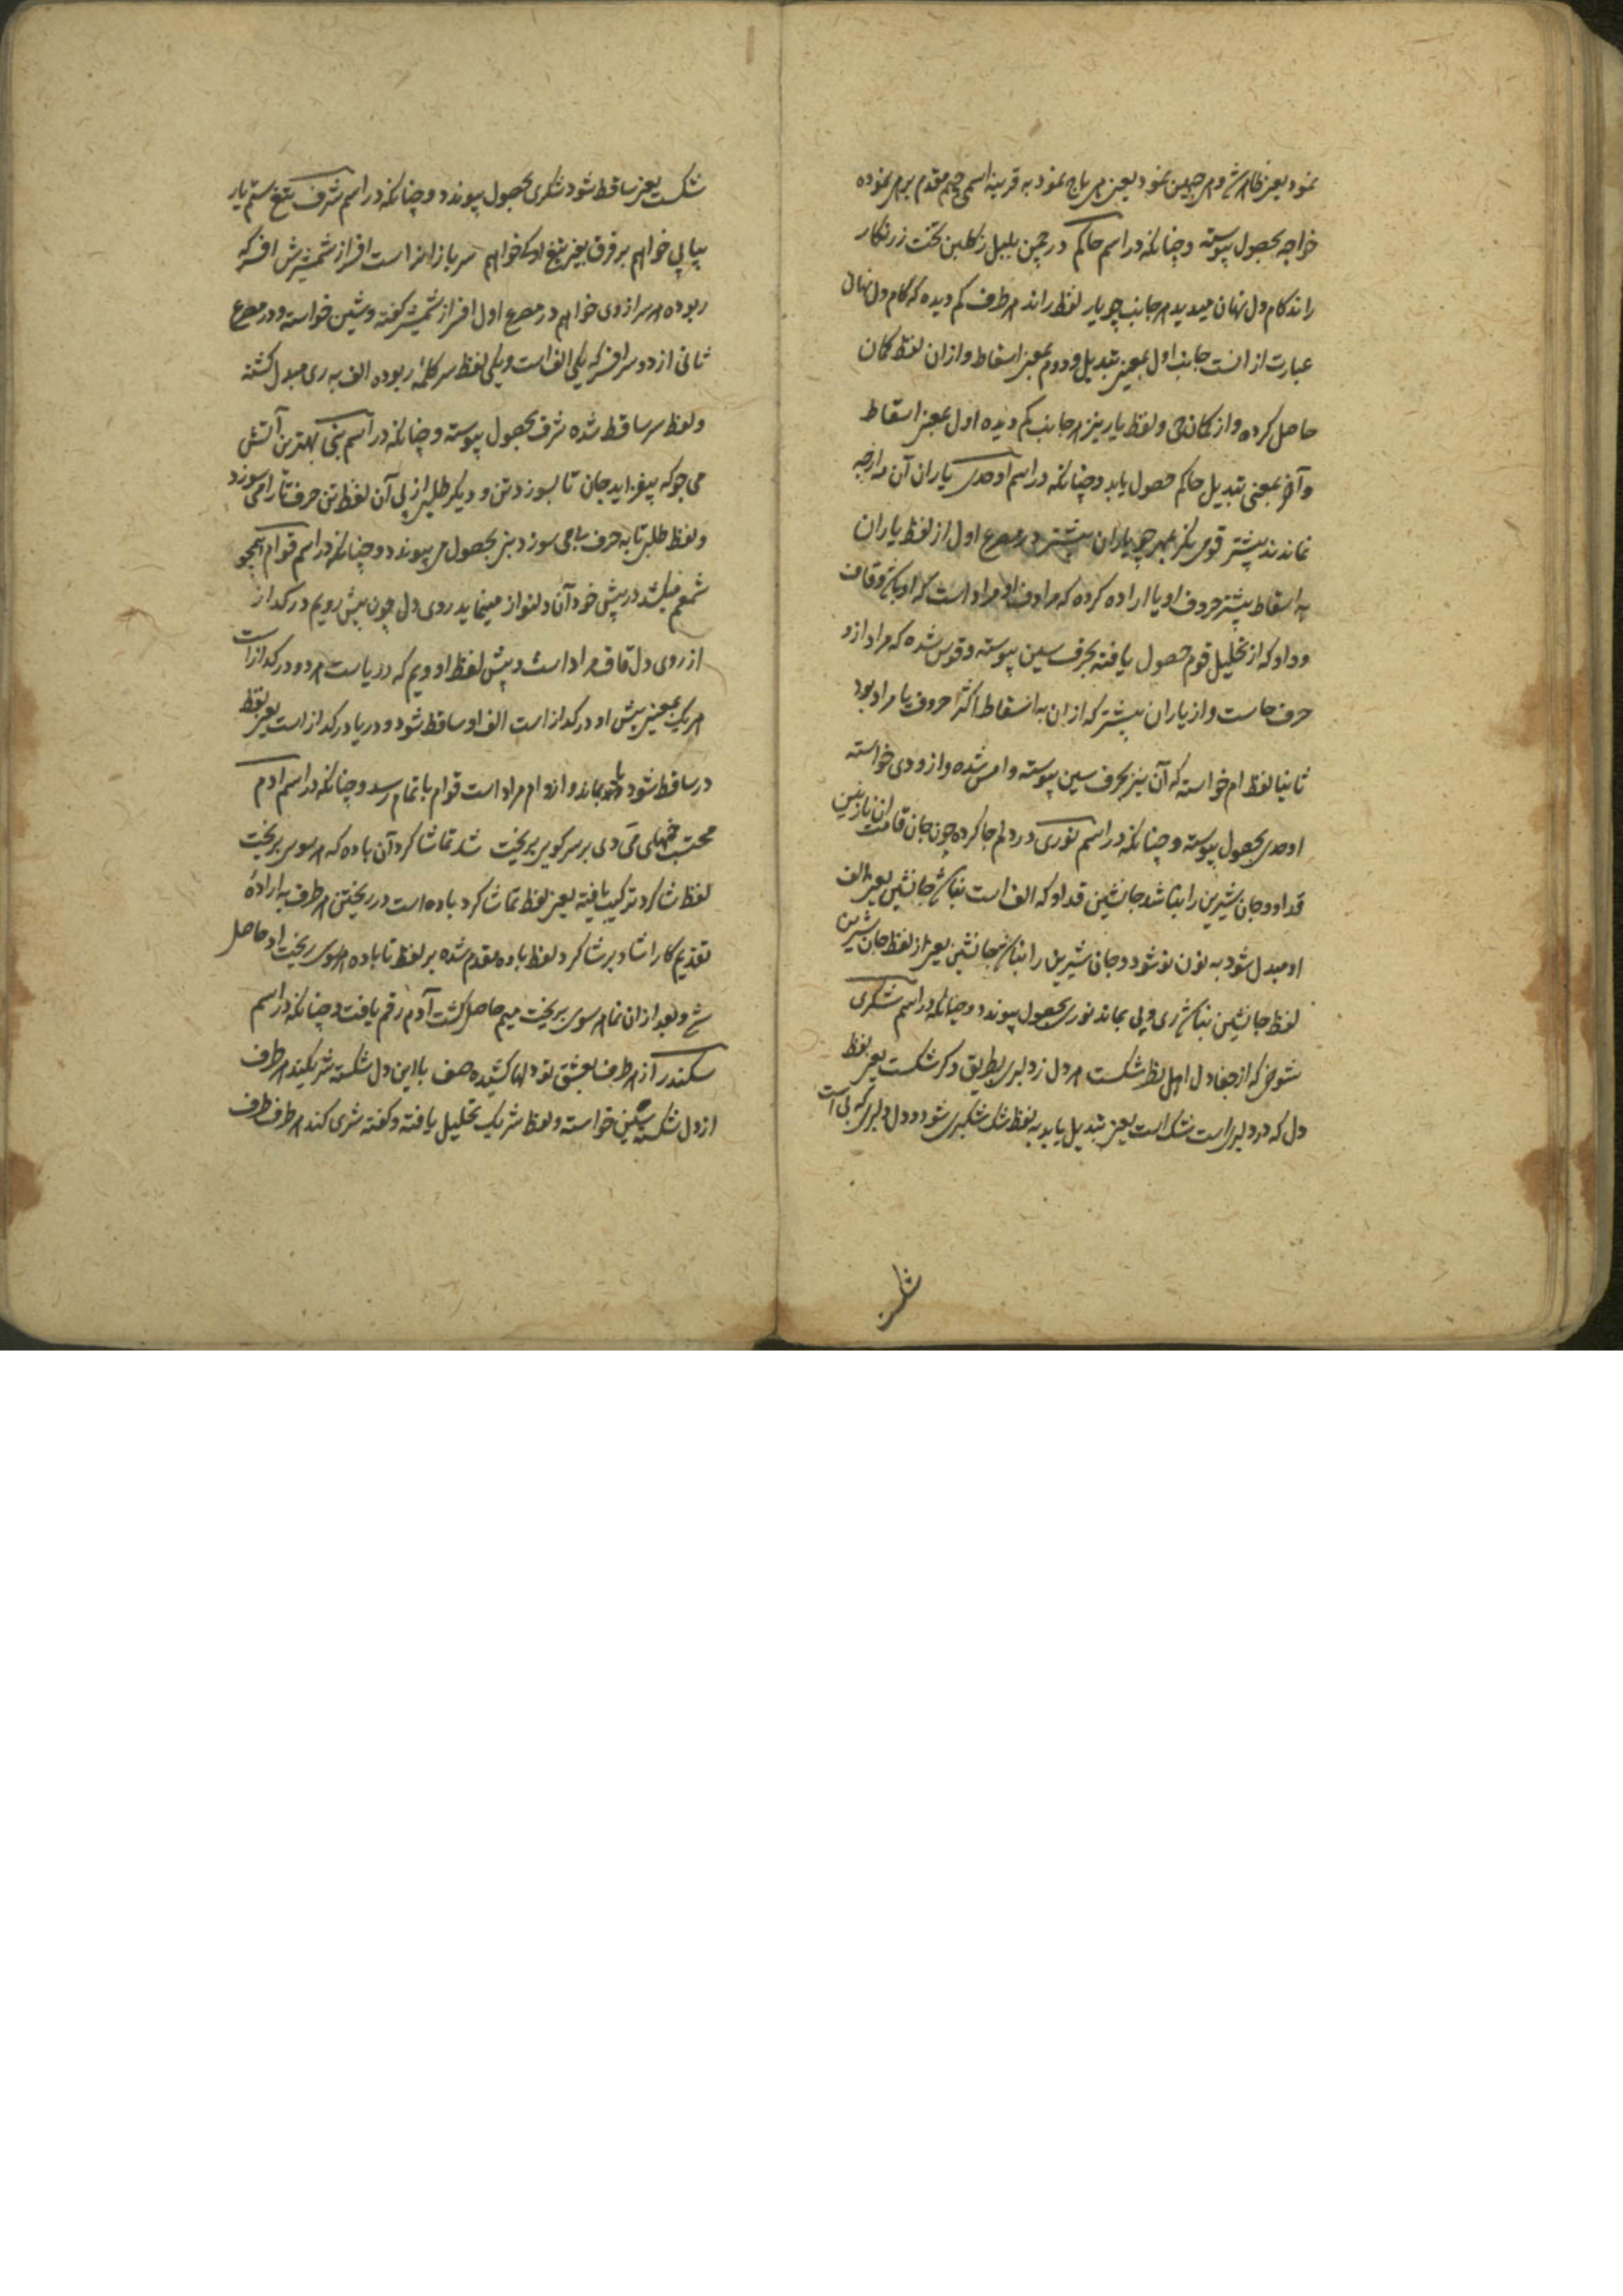 نمود یعنی ظاهر شد و هر جبین نمود یعنی بی تاج نمود به قرینه اسمی جیم مقدم بر هر نموده
خواجه بحصول پیوسته و چنانکه در اسم حاکم در چمن بلبل ز کلبن تخت زرنکار
راند کام دل نهان میدید هر جانب چو یار لفظ راند هر طرف کم دیده که کام دل نهان
عبارت از انست جانب اول بمعنی تبدیل و دوم بمعنی اسقاط و ازان لفظ کان
حاصل کرده و از کان حی و لفظ یار نیز هر جانب کم دیده اول بمعنی اسقاط
و آخر بمعنی تبدیل حاکم حصول یابد و چنانکه در اسم اوحدی یاران آن مه ارچه
نماندند پیشتر قوسی نکر بهر چه یاران پیشتر در مصرع اول از لفظ یاران
به اسقاط پیشتر حروف او یا اراده کرده که مرادف او مراد است که او باز قاف
و واو که از تحلیل قوم حصول یافته بحرف سین پیوسته و قوس شده که مراد ازو
حرف حاست و از یاران پیشتر که ازان به اسقاط اکثر حروف یا مراد بود
ثانیا لفظ ام خواسته که آن نیز بحرف سین پیوسته و امس شده و ازو دی خواسته
اوحدی بحصول پیوسته و چنانکه در اسم نوری در دلم جا کرده چون جان قامت آن نازنین
قد او و جان شیرین را بنا شد جانشین قد او که الف است بناش جانشین یعنی الف
او مبدل شود به نون نو شود و جان شیرین را بناش جانشین یعنی از لفظ جان شیرین
لفظ جانشین بناش ری و یی بماند نوری بحصول پیوندد و چنانکه در اسم شکری
شوخی که از جفا دل اهل نظر شکست هر دل ز دلبری بطریق دکر شکست یعنی لفظ
دل که در دلبری است شک است یعنی تبدیل یابد به لفظ شک شکبری شود و دل دلبری که بی است
شکست
شکست یعنی ساقط شود شکری بحصول پیوندد و چنانکه در اسم شرف تیغ ستم یار
پیاپی خواهم بر فرق بغیر تیغ او کی خواهم سر باز انرا است افراز شمشیرش افسر که
ربوده هر سر ازوی خواهم در مصرع اول افراز شمشیر کفته و شین خواسته و در مصرع
ثانی از دو سر افسر که یکی الف است و یکی لفظ سر کلمه ربوده الف به ری مبدل کشته
و لفظ سر ساقط شده شرف بحصول پیوسته و چنانکه در اسم نبی بهترین آتش
می جو که بیفزاید جان تا بسوزد تن و دیکر طلبی از پی آن لفظ تن حرف تا را می سوزد
و لفظ طلبی تا به حرف با می سوزد نبی بحصول می پیوندد و چنانکه در اسم قوام همچو
شمعم میکشد در پیش خود آن دلنواز مینماید روی دل چون پیش رویم در کداز
از روی دل قاف مراد است و پیش لفظ او و یم که دریاست هر دو در کداز است
هر یک بمعنی پیش او در کداز است الف او ساقط شود و دریا در کداز است یعنی لفظ
در ساقط شود و یا بماند و ازو ام مراد است قوام باتمام رسد و چنانکه در اسم ادم
محتسب خمهای می دی بر سر کویی بریخت شد تماشا کرد آن باده که هر سوی بریخت
لفظ شا کرد ترکیب یافته یعنی لفظ تما شا کرد باده است در ریختن هر طرف به اراده
تقدیم کار استاد بر شا کرد لفظ باده مقدم شده بر لفظ تا باده هر سوی ریخت اد حاصل
شد و بعد ازان تما هر سوی بریخت میم حاصل کشت آدم رقم یافت و چنانکه در اسم
سکندر از هر طرف بعشق تو دلها کشیده صف با این دل شکسته شریکند هر طرف
از دل شکسته سین خواسته و لفظ شریک تحلیل یافته و کفته شری کند هر طرف طرف